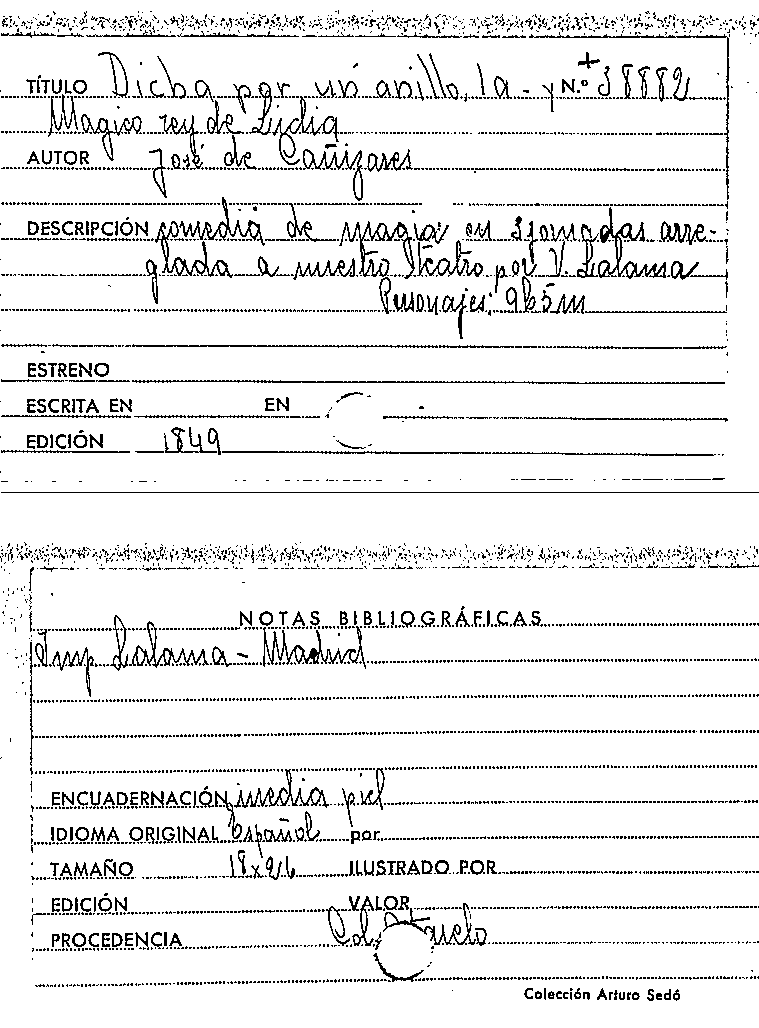 TÍTULO Dicha por un anillo, la - y N.º 38882
Magico rey de Lidia
AUTOR José de Cañizares
DESCRIPCIÓN comedia de magia en 3 jornadas arre-
glada a nuestro Teatro por V. Lalama
Personajes: 9h 5m
ESTRENO
ESCRITA EN EN
EDICIÓN 1849
NOTAS BIBLIOGRÁFICAS
Imp Lalama - Madrid
ENCUADERNACIÓN media piel
IDIOMA ORIGINAL Español por
TAMAÑO ILUSTRADO POR
EDICIÓN VALOR
PROCEDENCIA Col.
Colección Arturo Sedó